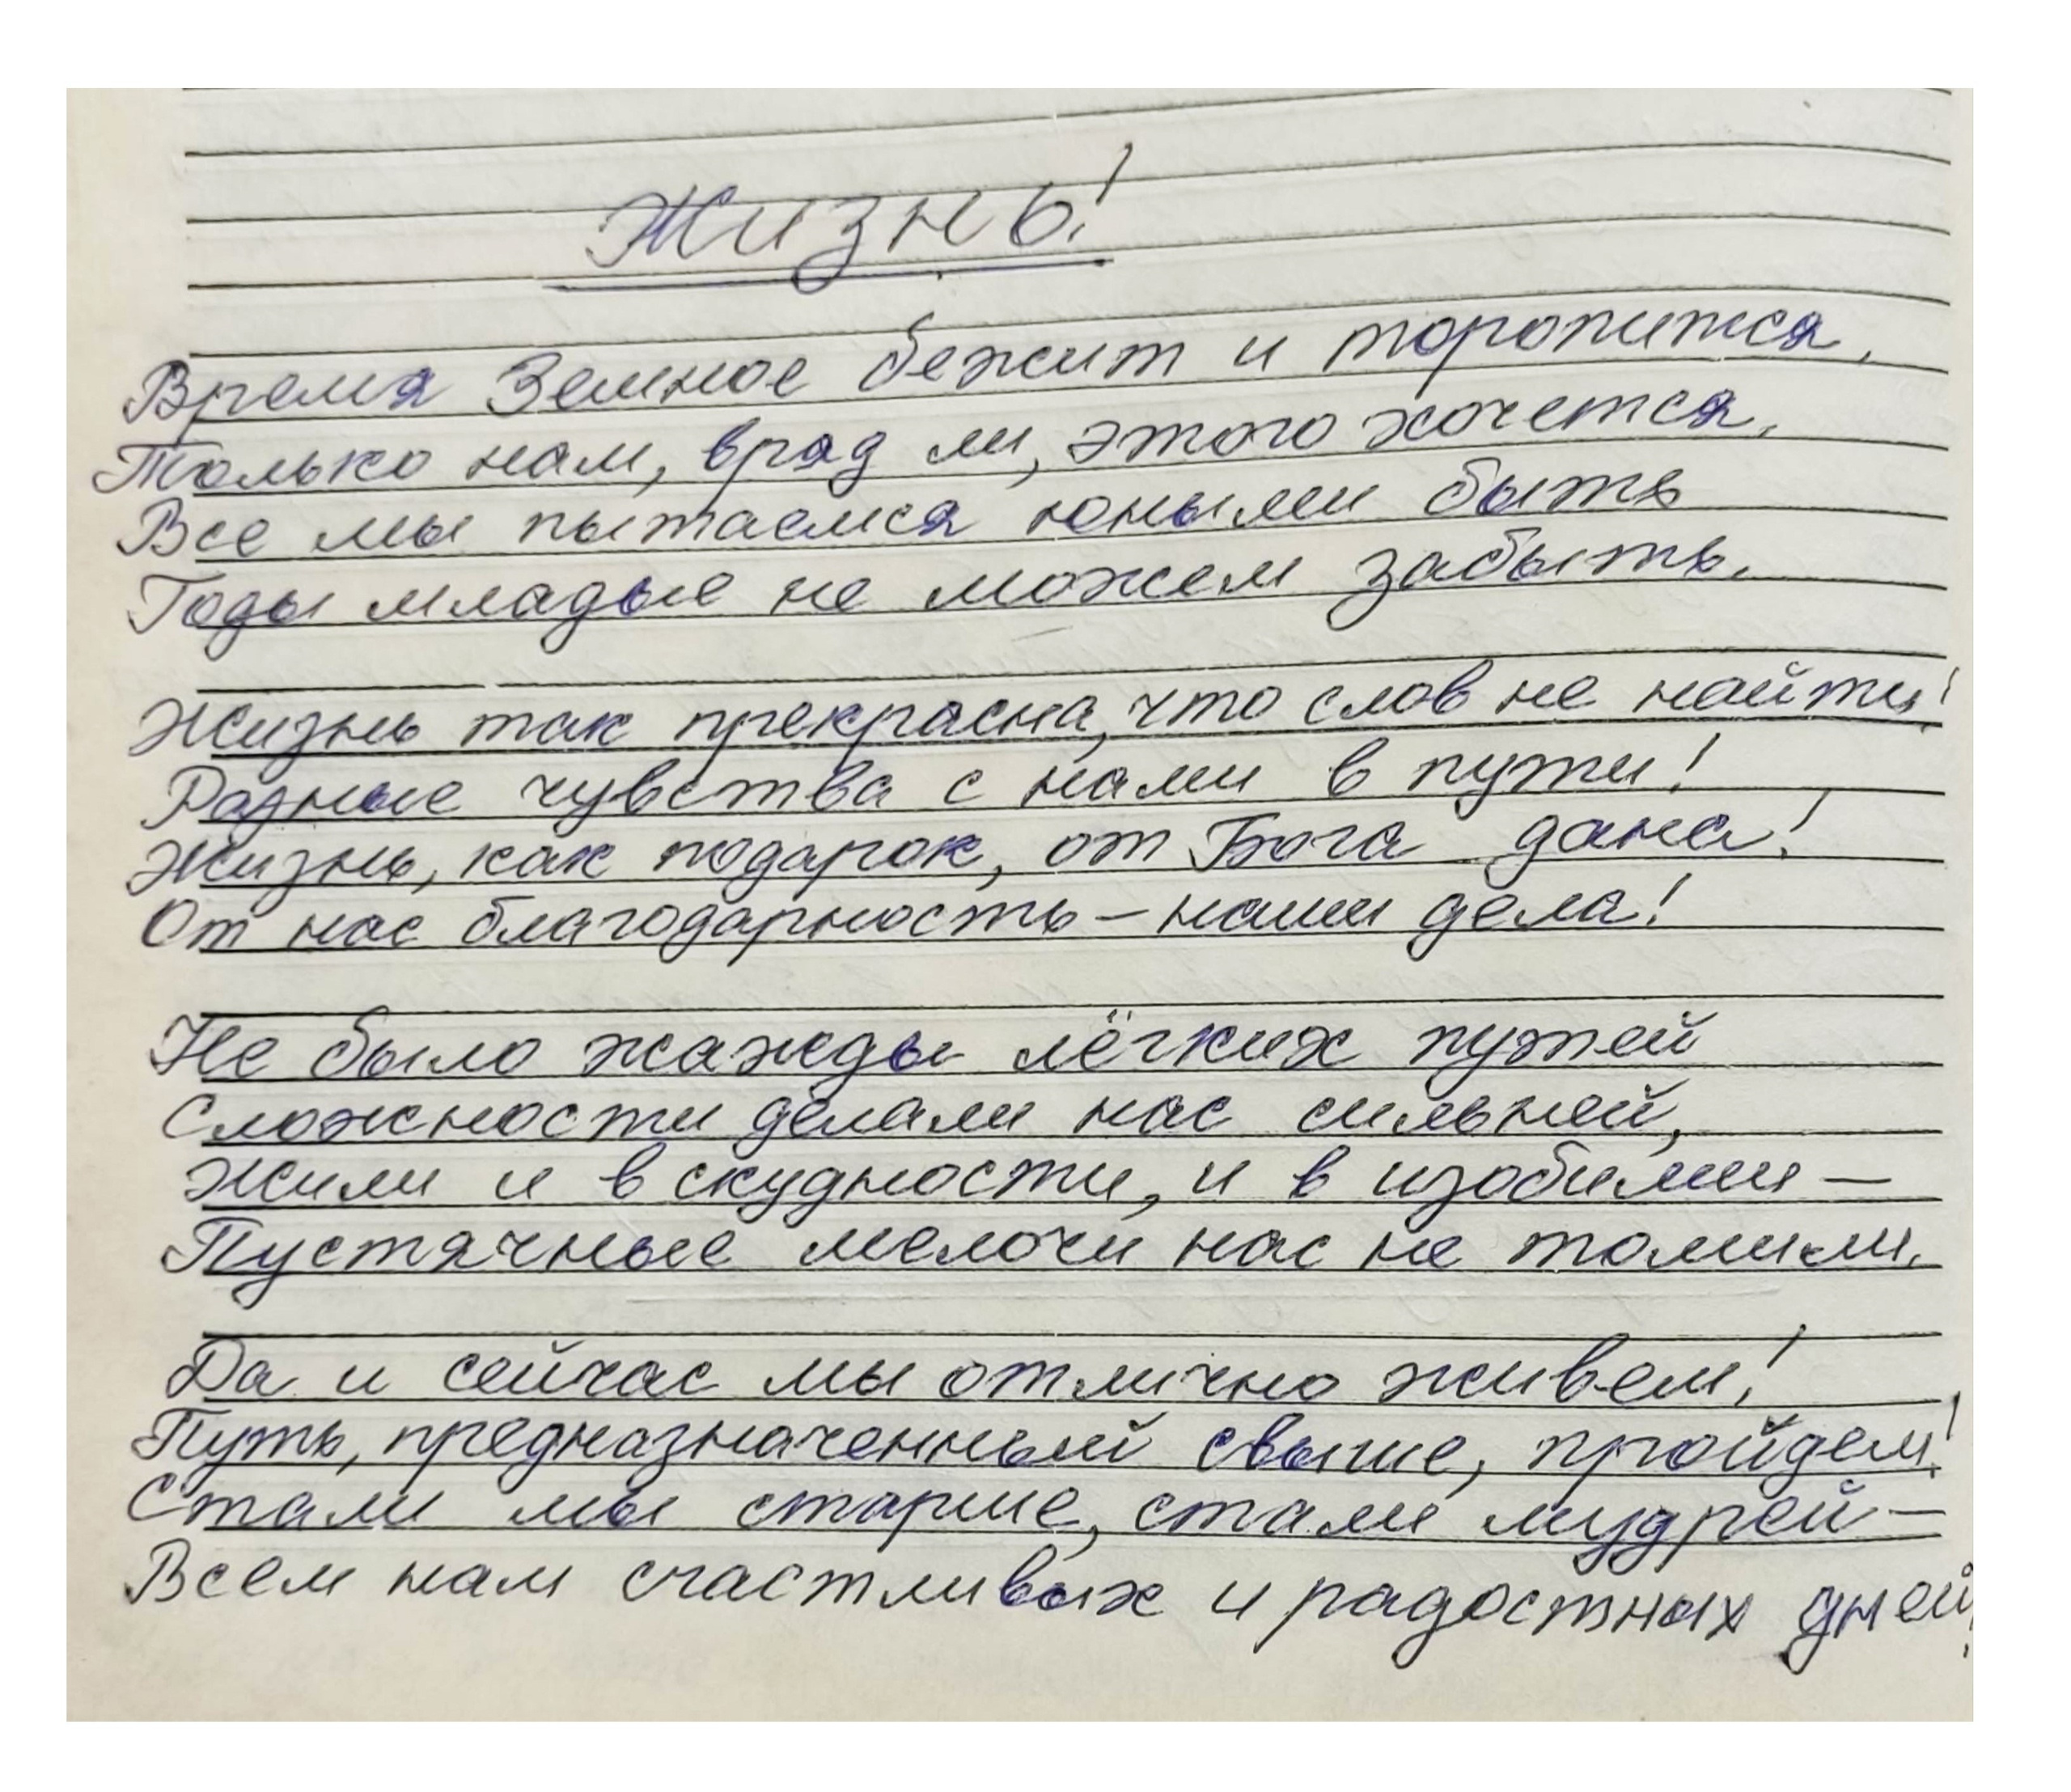 Жизнь!
Время Земное бежит и торопится,
Только нам, вряд ли, этого хочется,
Все мы пытаемся юными быть
Годы младые не можем забыть.
Жизнь так прекрасна, что слов не найти!
Разные чувства с нами в пути!
Жизнь, как подарок, от Бога дана!
От нас благодарность – наши дела!
Не было жажды лёгких путей
Сложности делали нас сильней,
Жили и в скудности, и в изобилии –
Пустячные мелочи нас не томили.
Да и сейчас мы отлично живем!
Путь, предназначенный свыше, пройдем!
Стали мы старше, стали мудрей –
Всем нам счастливых и радостных дней!